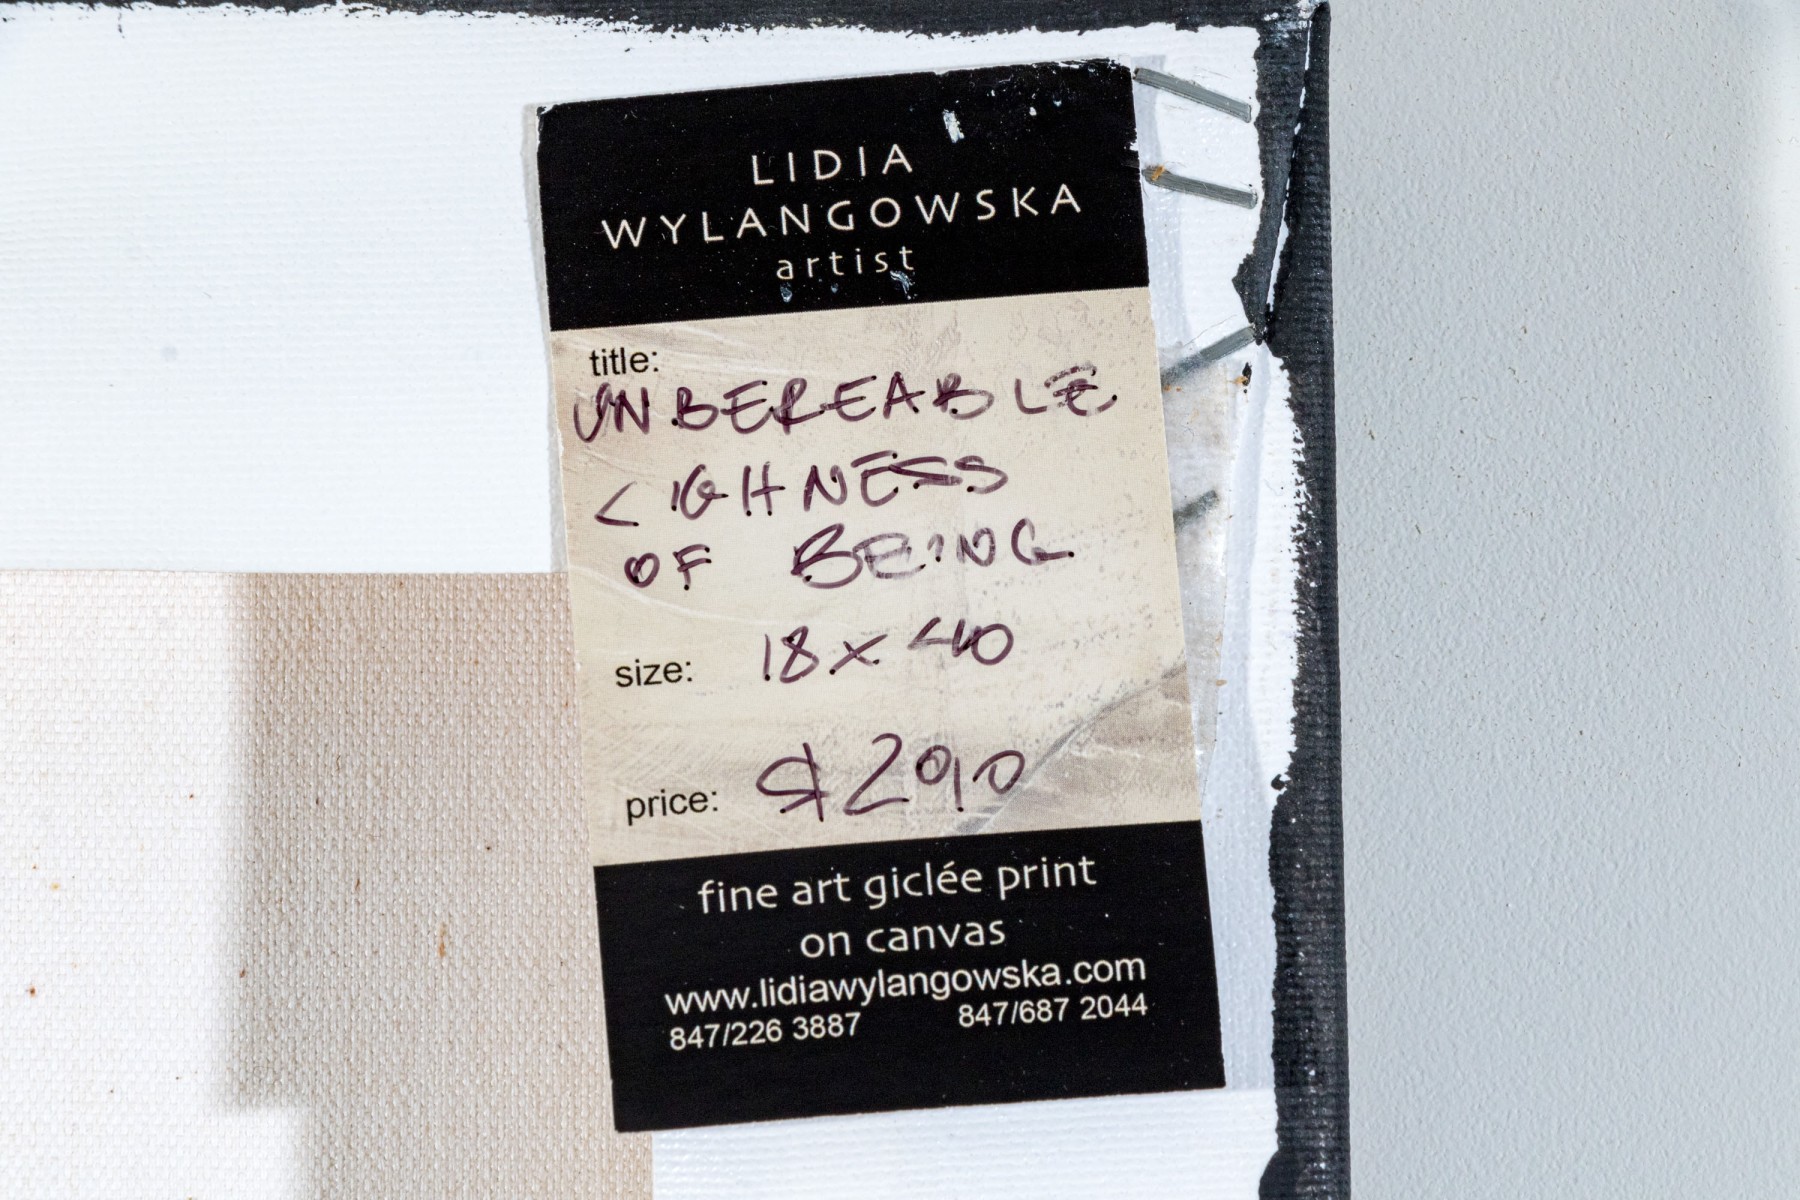 LIDIA
WYLANGOWSKA
artist
title:
UNBEREABLE
LIGHNESS
OF BEING
size: 18 x 40
price: $290
fine art giclée print
on canvas
www.lidiawylangowska.com
847/226 3887 847/687 2044